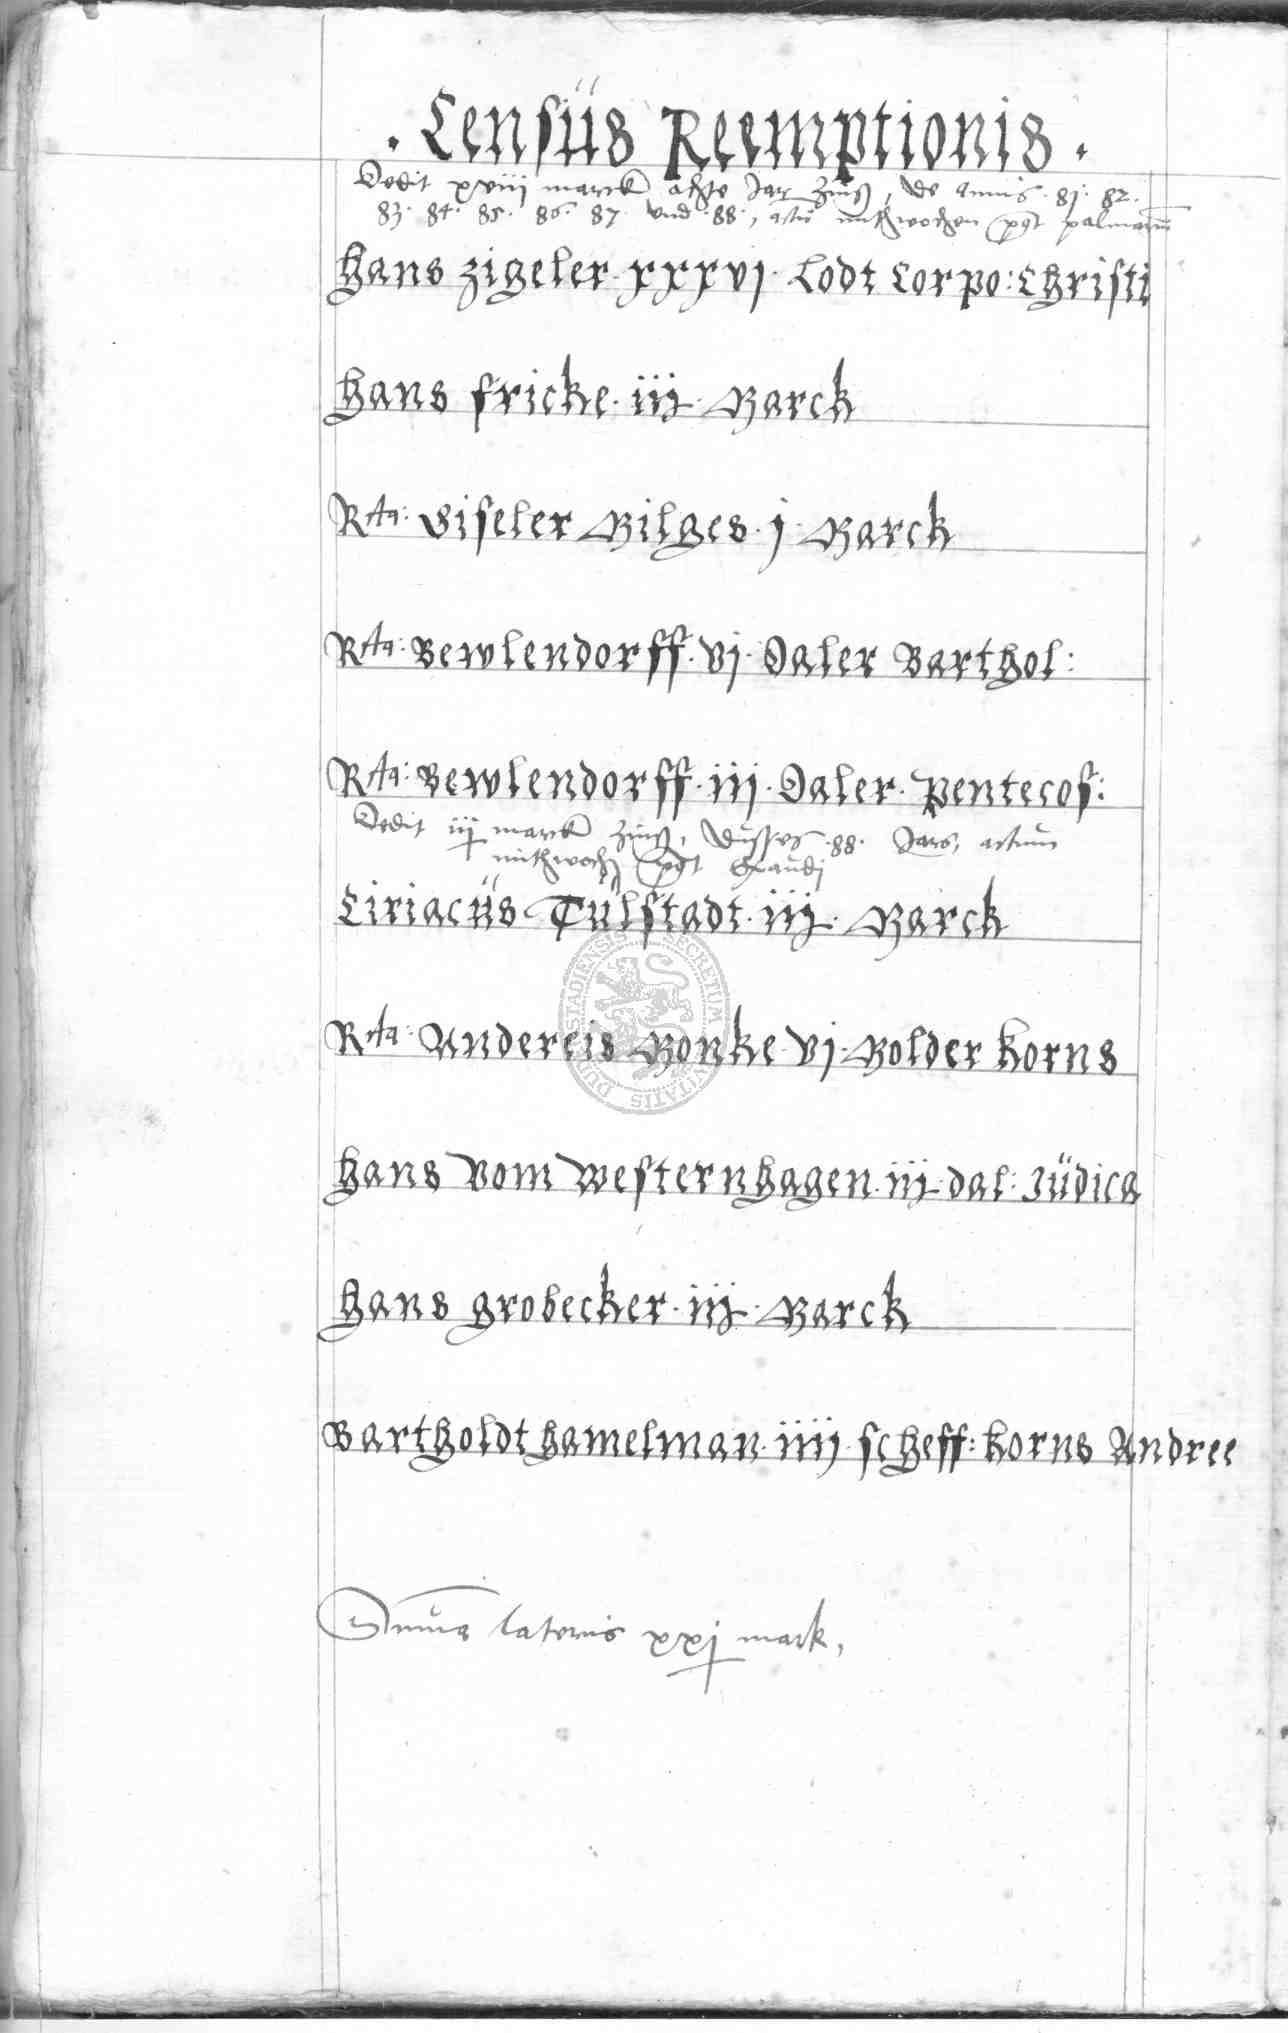 . Censüs Reemptionis .
Dedit xviii marck achte Jar Zinß, de Annis . 81 . 82 .
83 . 84 . 85 . 86 . 87 . vnd . 88 ., actu mithwochen post palmarum
Hans Zigeler . xxxvj . Lodt Corpo: Christi
Hans fricke . iij . Marck
Rta: Giseler Milges . j . Marck
Rta: Bewlendorff . vj . Daler Barthol:
Rta: Bewlendorff . iij . Daler . Pentecos:
Dedit iij marck Zinß, dusses . 88 . Jars, actum
mithwoch post Exaudi
Ciriacüs Tulstadt . iij . Marck
Rta: Andereis Monke . vj . Molder korns
Hans vom Westernhagen . iij . dal: Jüdica
Hans grobecker . iij . Marck
Bartholdt Hamelman . iiij . scheff: korns Andree
SECRETUM CIVITATIS DUDERSTADIENSIS
Summa lateris xxj mark,